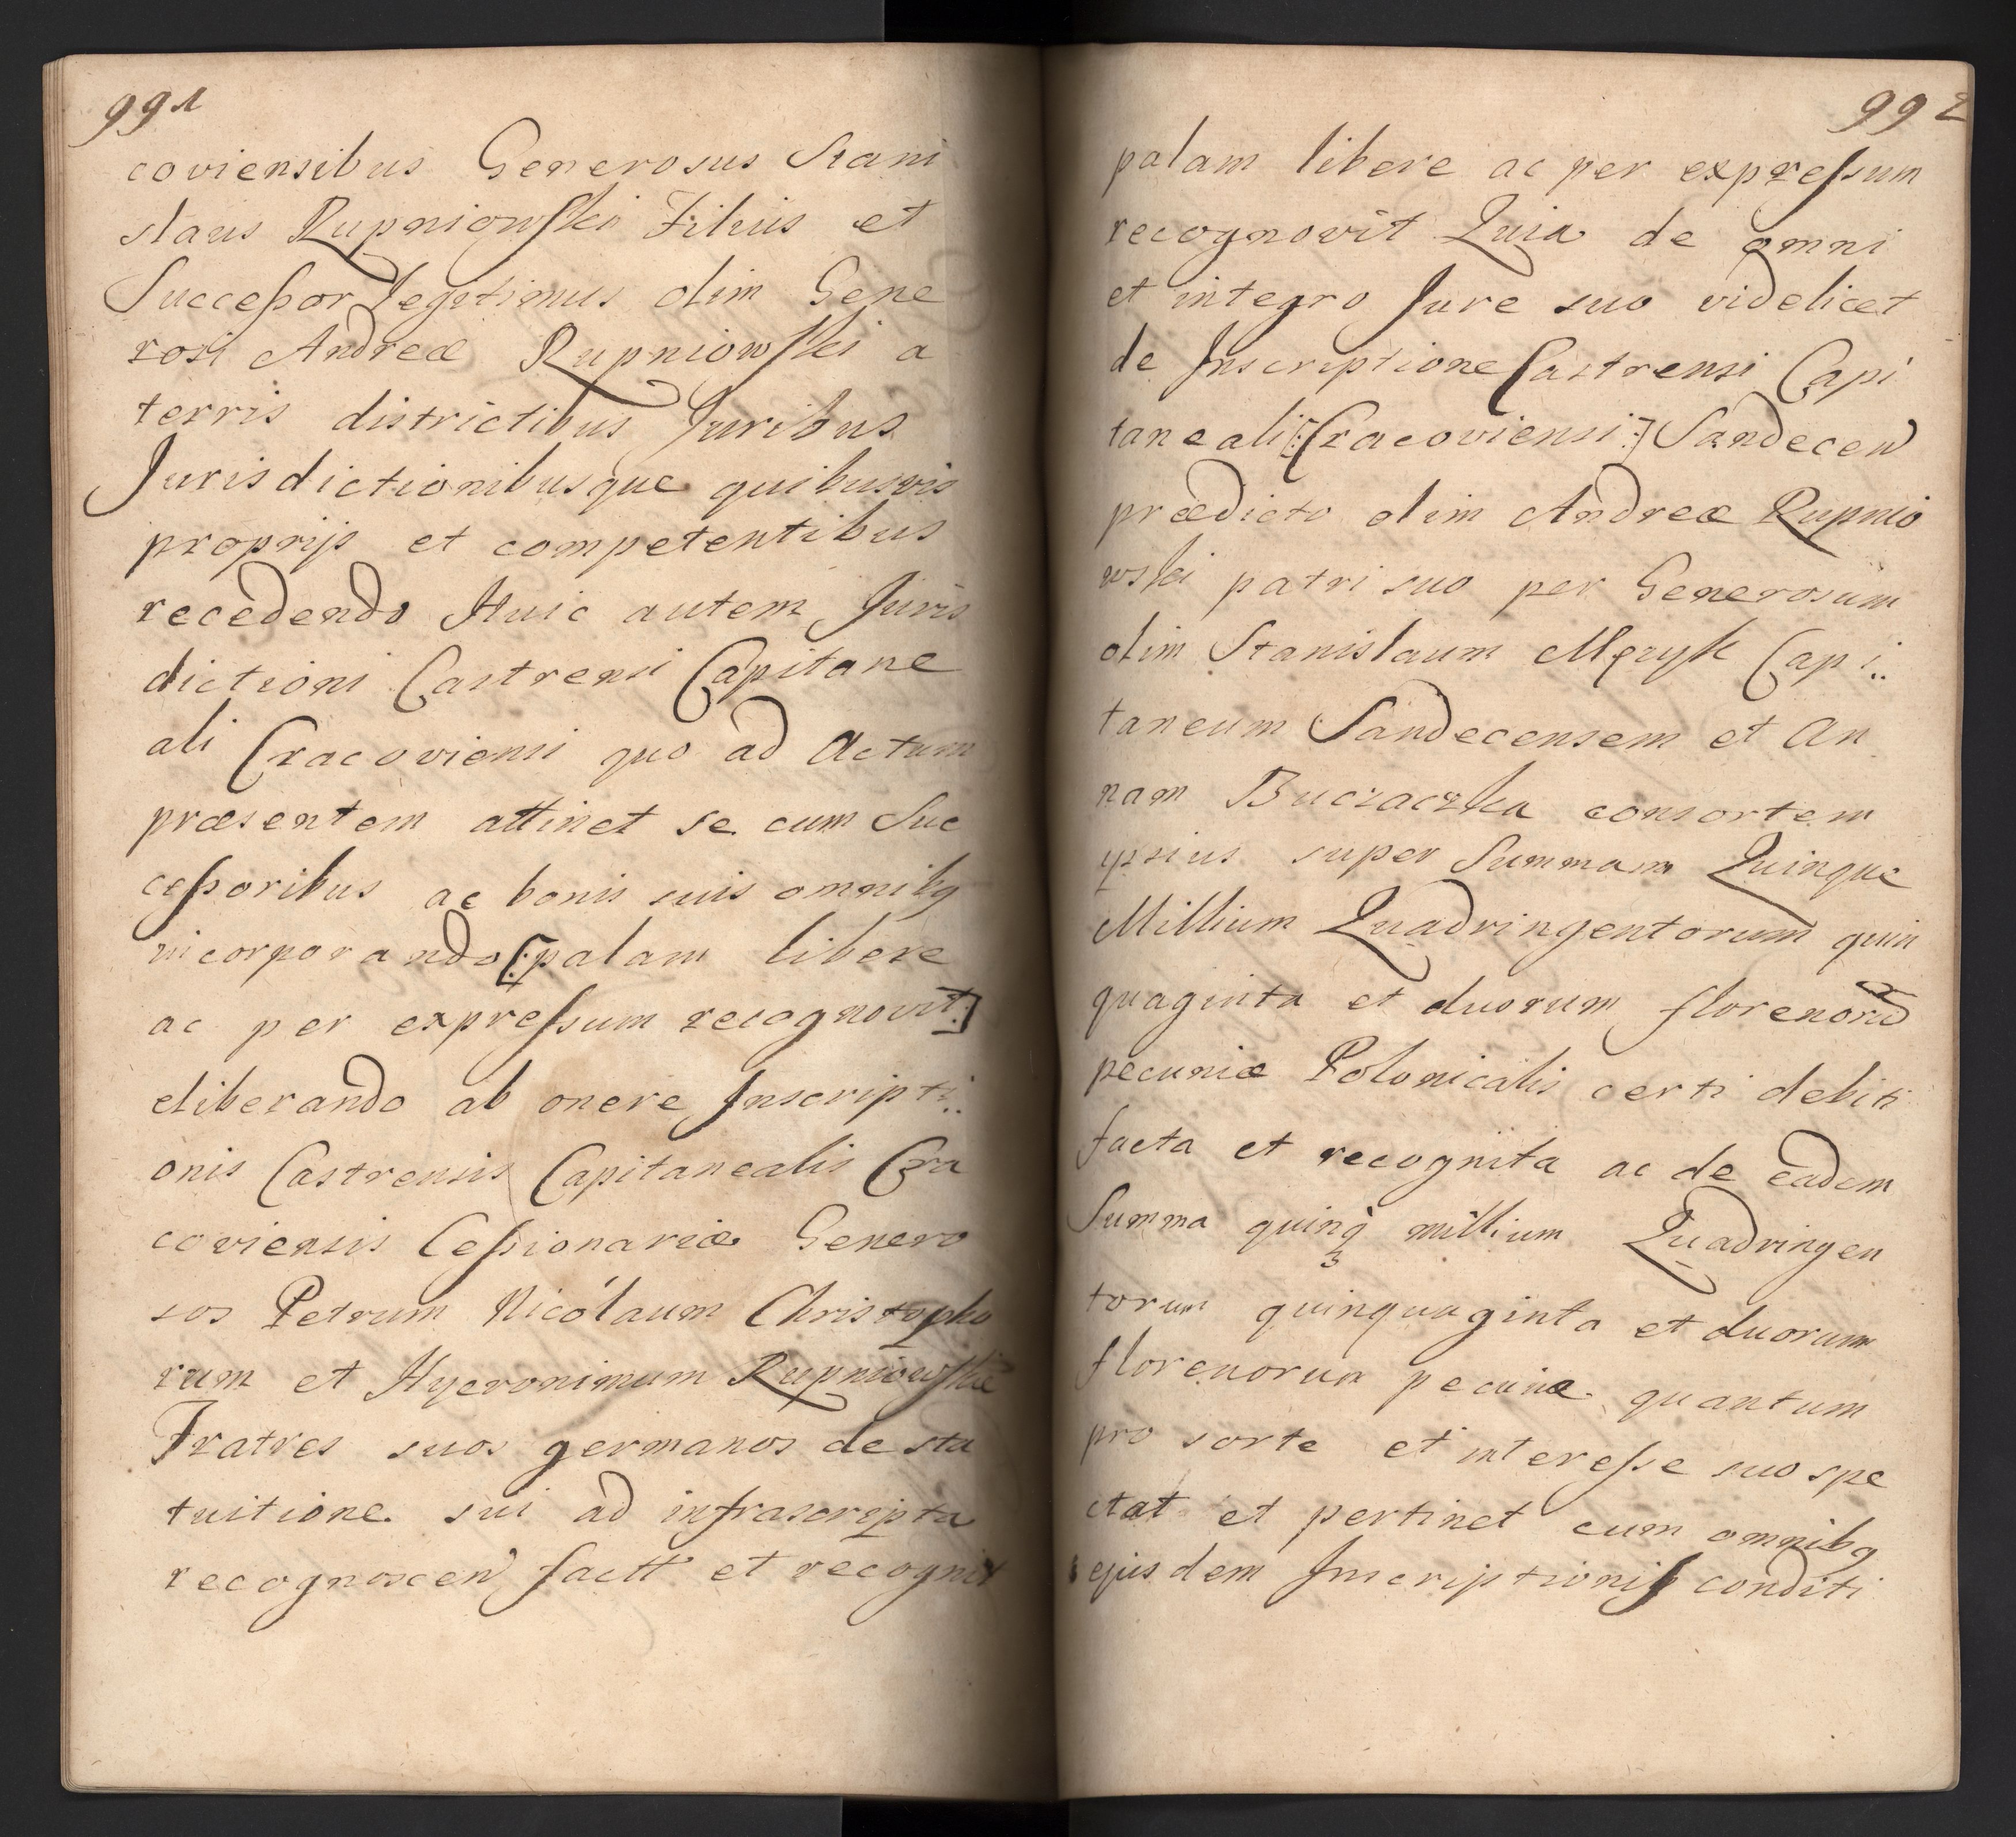 991
coviensibus Generosus Stani
slaus Rupniowski Filius et
Successor Legitimus olim Gene
rosi Andreæ Rupniowski a
terris districtibus Juribus
Jurisdictionibusque quibusvis
proprijs et competentibus
recedendo Huic autem Juris
dictioni Castrensi Capitane
ali Cracoviensi quo ad Actum
præsentem attinet se cum Suc
cessoribus ac bonis suis omnibq
incorporando [:palam libere
ac per expressum recognovit:]
eliberando ab onere Inscripti..
onis Castrensis Capitanealis Cra
coviensis Cessionariæ Genero
sos Petrum Nicolaum Christopho
rum et Hyeronimum Rupniowskie
Fratres suos germanos de sta
tuitione sui ad infrascripta
recognoscen factt et recognit
992
palam libere ac per expressum
recognovit Quia de omni
et integro Jure suo videlicet
de Inscriptione Castrensi Capi
taneali [:Cracoviensi:] Sandecen
prædicto olim Andreæ Rupnio
wski patri suo per Generosum
olim Stanislaum Męzyk Capi..
taneum Sandecensem et An
nam Buczaczka consortem
ipsius super Summam Quinque
Millium Quadringentorum quin
quaginta et duorum florenorū
pecuniæ Polonicalis certi debiti
facta et recognita ac de eadem
Summa quinq millium Quadringen
torum quinquaginta et duorum
florenorum pecuniæ quantum
pro sorte et interesse suo spe
ctat et pertinet cum omnibq
ejusdem Inscriptionis conditi